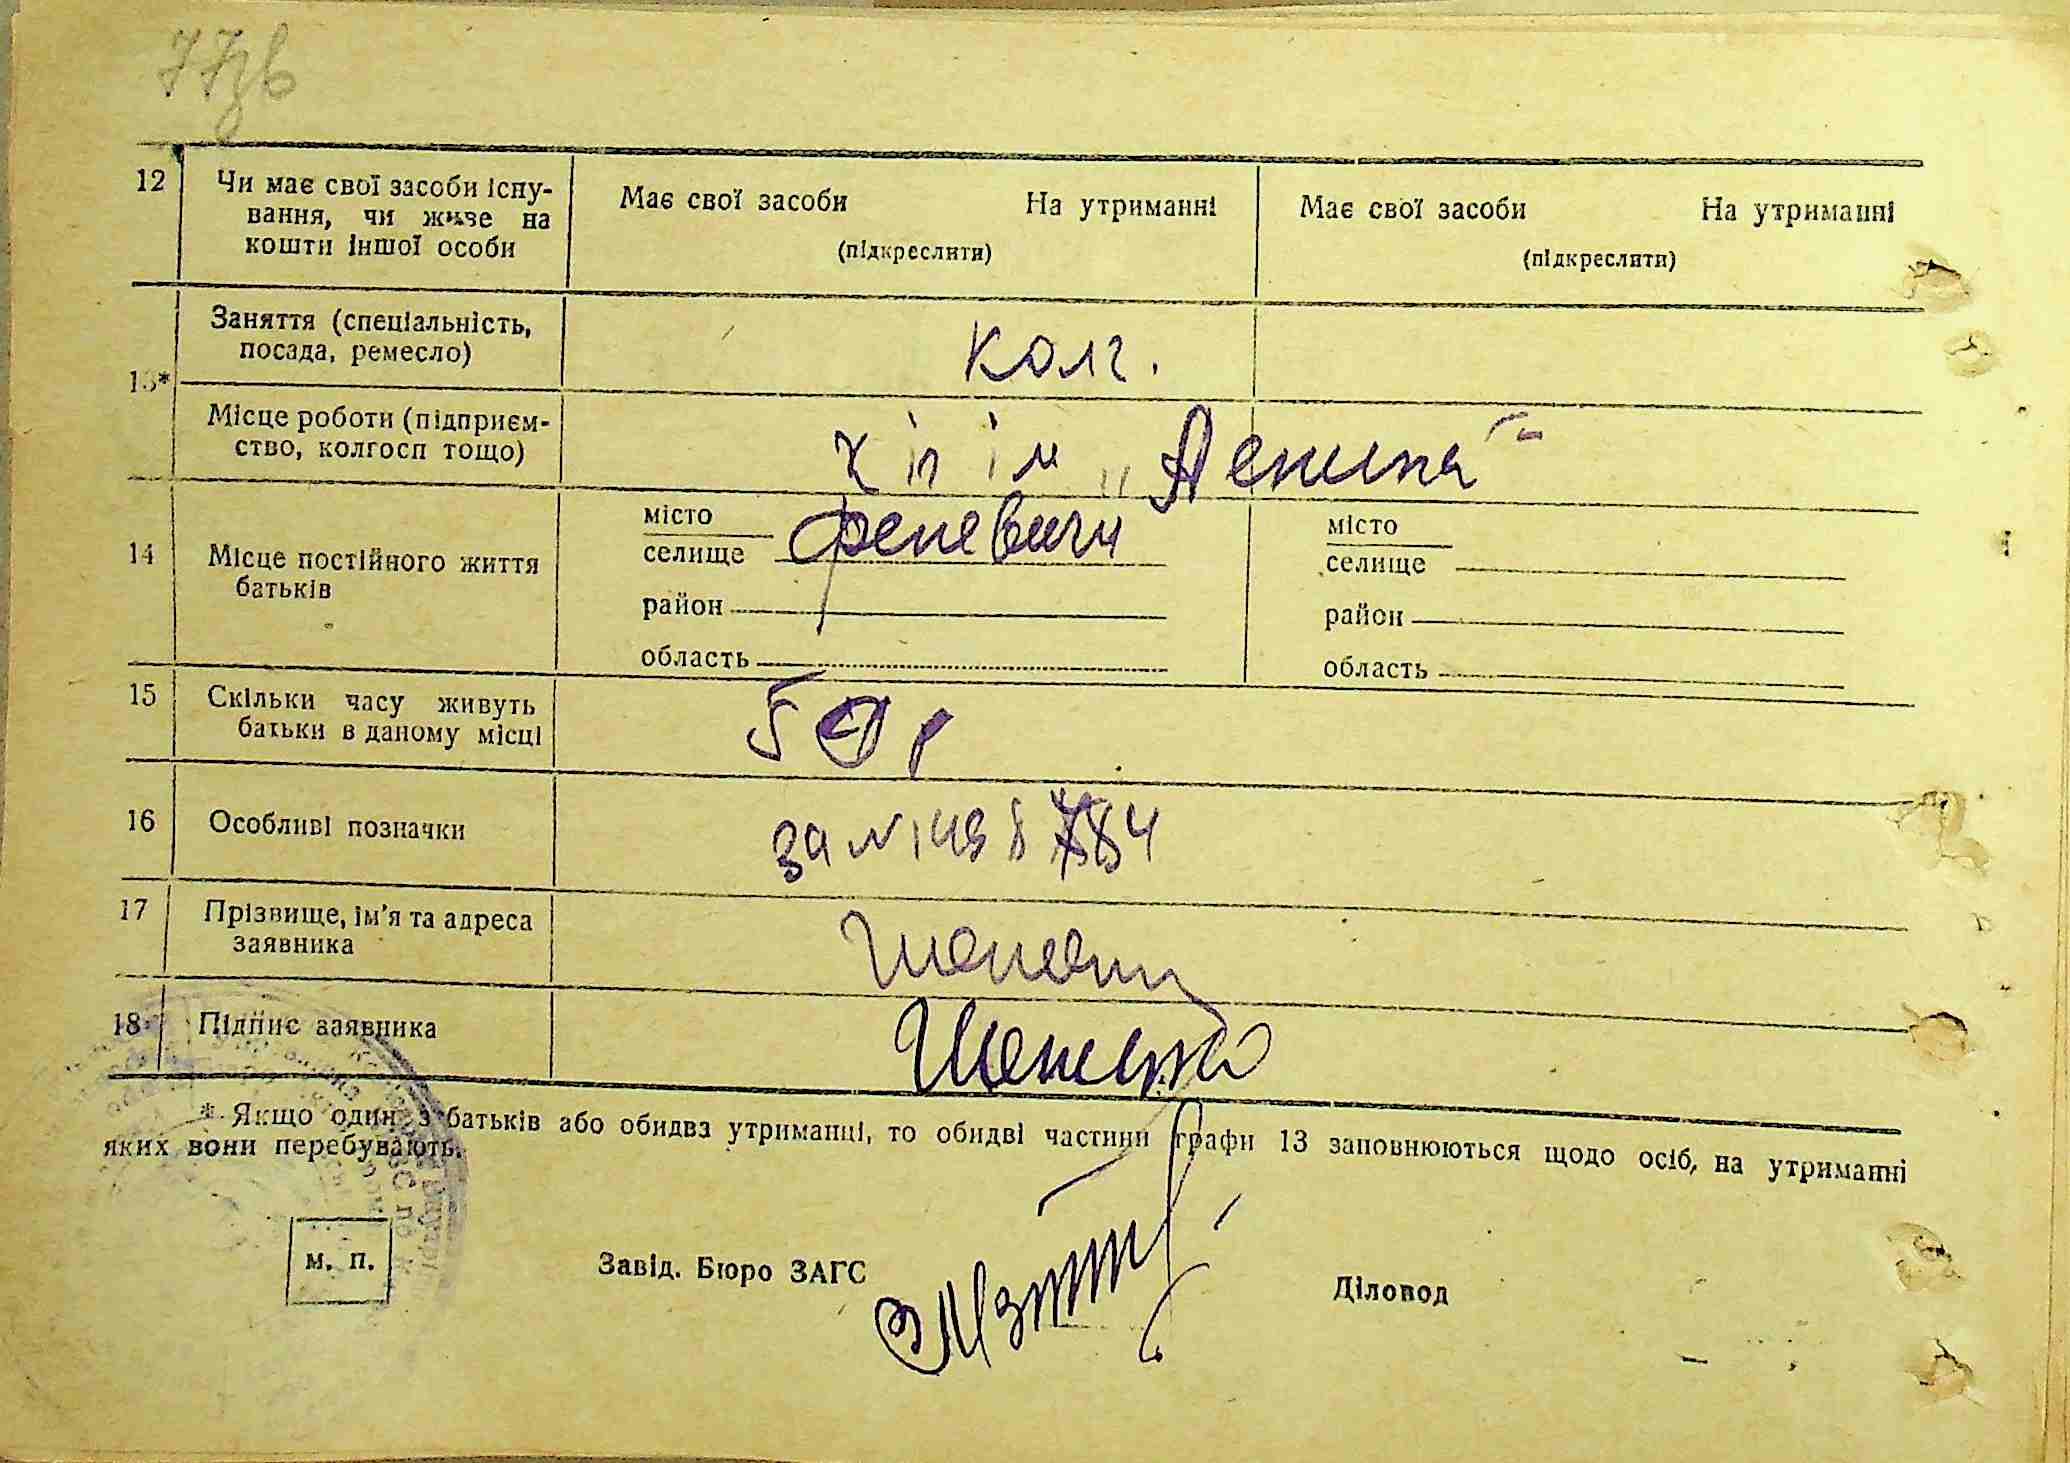 77зв
12 Чи має свої засоби існу-
вання, чи живе на
кошти іншої особи
Має свої засоби На утриманні
(підкреслити)
Має свої засоби На утриманні
(підкреслити)
13*
Заняття (спеціальність,
посада, ремесло)
колг.
Місце роботи (підприєм-
ство, колгосп тощо)
к п ім „Леніна“
14 Місце постійного життя
батьків
місто
селище Феневичи
район
область
місто
селище
район
область
15 Скільки часу живуть
батьки в даному місці
16 Особливі позначки
за №
17 Прізвище, ім'я та адреса
заявника
18 Підпис заявника
* Якщо один з батьків або обидва утриманці, то обидві частини графи 13 заповнюються щодо осіб, на утриманні
яких вони перебувають.
м. п.
Завід. Бюро ЗАГС
Діловод